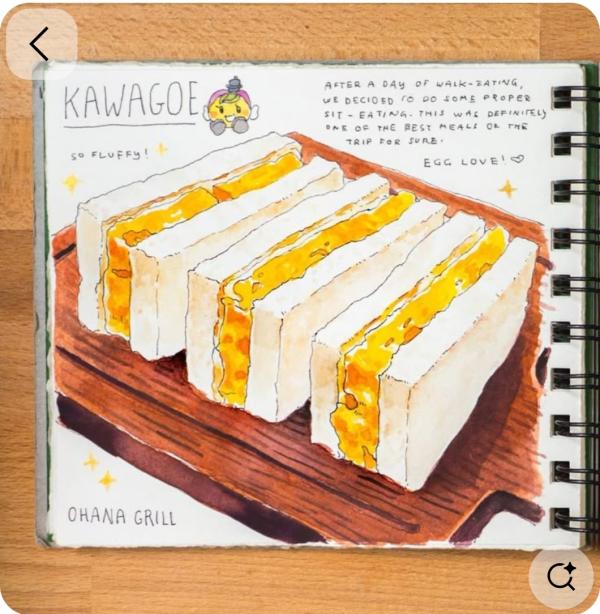 KAWAGOE
SO FLUFFY!
AFTER A DAY OF WALK-EATING,
WE DECIDED TO DO SOME PROPER
SIT-EATING. THIS WAS DEFINITELY
ONE OF THE BEST MEALS OF THE
TRIP FOR SURE.
EGG LOVE! ♡
OHANA GRILL